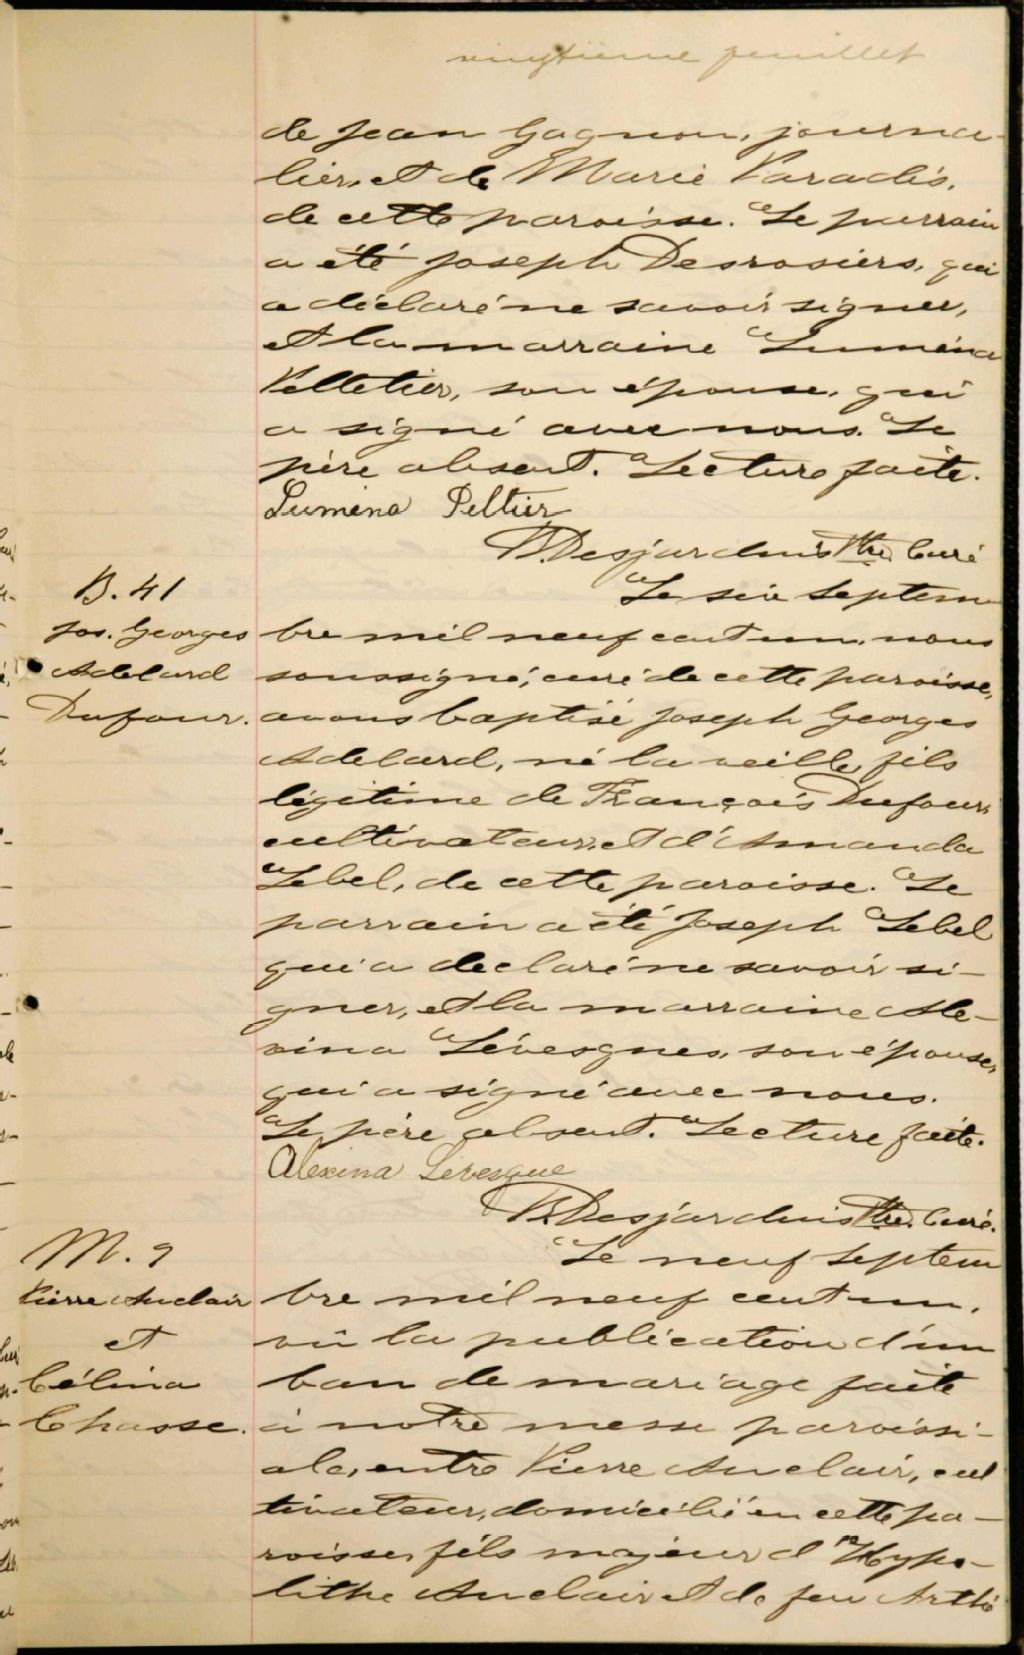 vingtième feuillet
de Jean Gagnon, journa-
lier, et de Marie Paradis,
de cette paroisse. Le parrain
a été Joseph Desrosiers, qui
a déclaré ne savoir signer,
et la marraine Luména
Pelletier, son épouse, qui
a signé avec nous. Le
père absent. Lecture faite.
Lumena Peltier
B. Desjardins Ptre. Curé
Le six septem
B. 41
Jos. Georges
Adelard
Dufour.
bre mil neuf cent un, nous
soussigné, curé de cette paroisse,
avons baptisé Joseph Georges
Adelard, né la veille, fils
légitime de François Dufour,
cultivateur, et d'Amanda
Lebel, de cette paroisse. Le
parrain a été Joseph Lebel
qui a declaré ne savoir si-
gner, et la marraine Ale-
xina Lévesques, son épouse,
qui a signé avec nous.
Le père absent. Lecture faite.
Alexina Lévesque
B. Desjardins Ptre. Curé.
Le neuf septem
M. 9
Pierre Auclair
et
Célina
Chasse.
bre mil neuf cent un,
vû la publication d'un
ban de mariage faite
à notre messe paroissi-
ale, entre Pierre Auclair, cul
tivateur, domicilié en cette pa-
roisse, fils majeur d'Hypo-
lithe Auclair et de feu Arthé